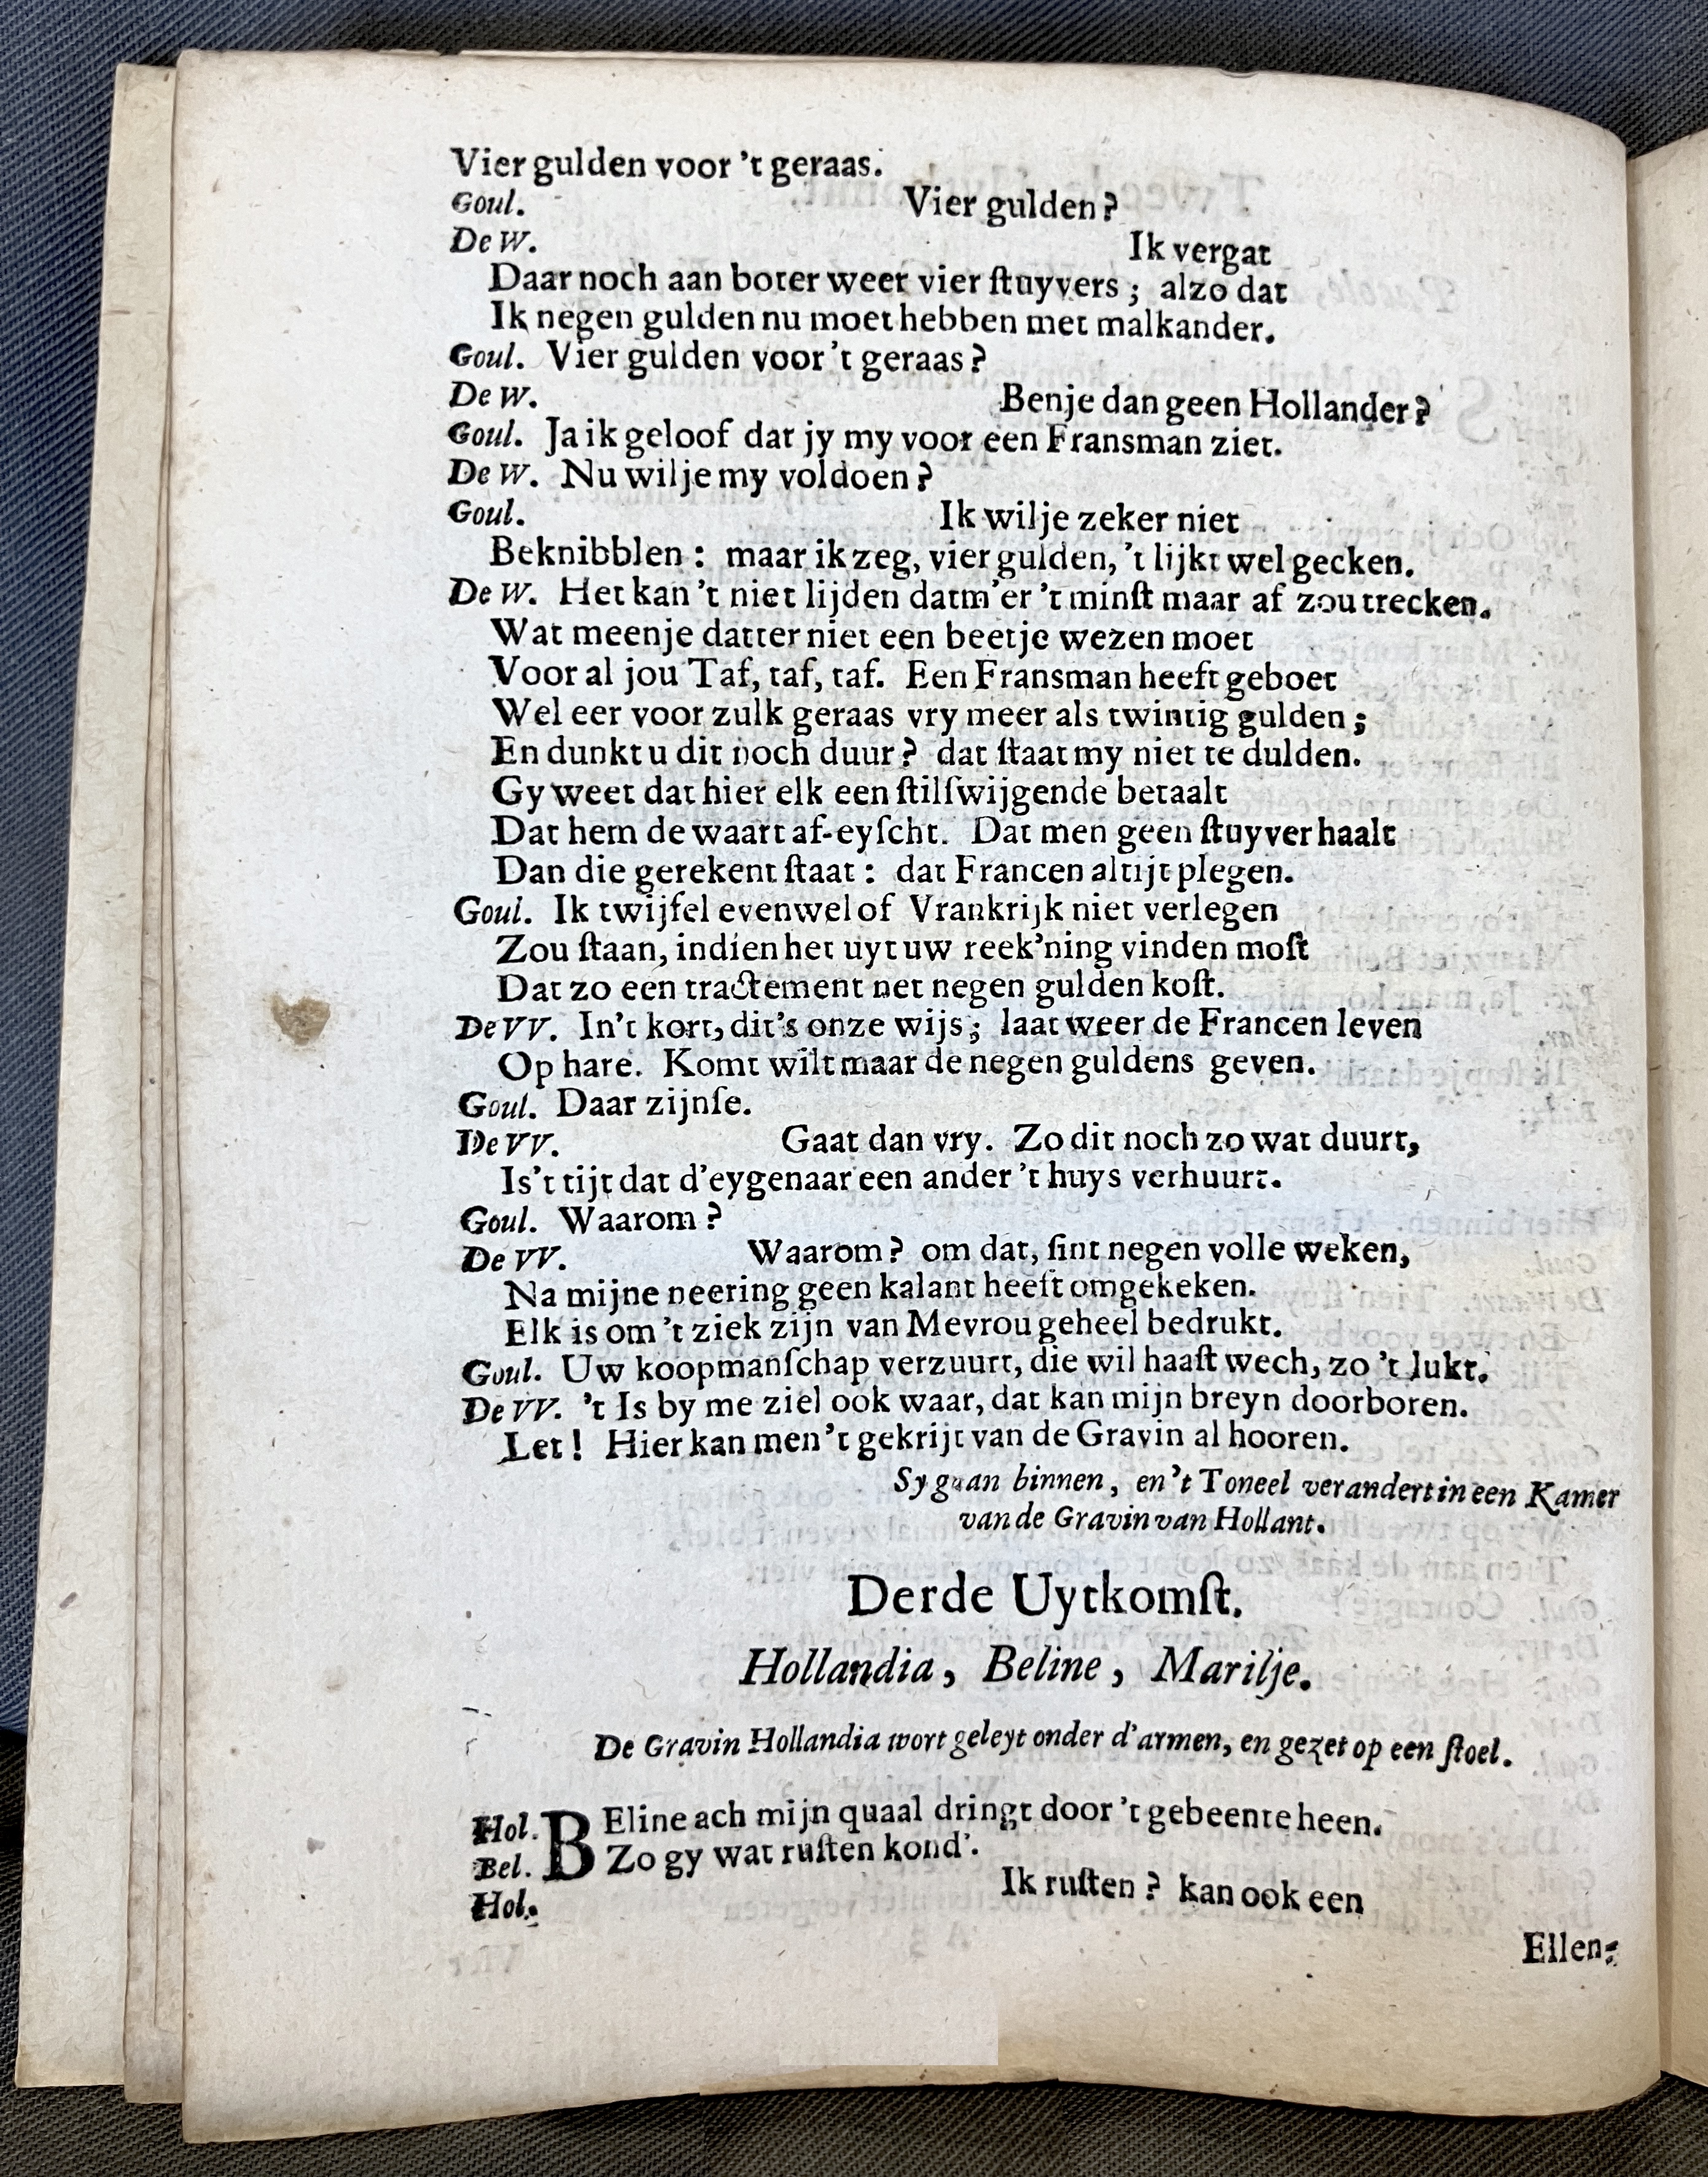 Vier gulden voor 't geraas.
Goul. Vier gulden?
De W. Ik vergat
Daar noch aan boter weer vier ſtuyvers; alzo dat
Ik negen gulden nu moet hebben met malkander.
Goul. Vier gulden voor 't geraas?
De W. Benje dan geen Hollander?
Goul. Ja ik geloof dat jy my voor een Fransman ziet.
De W. Nu wilje my voldoen?
Goul. Ik wilje zeker niet
Beknibblen: maar ik zeg, vier gulden, 't lijkt wel gecken.
De W. Het kan 't niet lijden datm'er 't minſt maar af zou trecken.
Wat meenje datter niet een beetje wezen moet
Voor al jou Taf, taf, taf. Een Fransman heeft geboet
Wel eer voor zulk geraas vry meer als twintig gulden;
En dunkt u dit noch duur? dat ſtaat my niet te dulden.
Gy weet dat hier elk een ſtilſwijgende betaalt
Dat hem de waart af-eyſcht. Dat men geen ſtuyver haalt
Dan die gerekent ſtaat: dat Francen altijt plegen.
Goul. Ik twijfel evenwel of Vrankrijk niet verlegen
Zou ſtaan, indien het uyt uw reek'ning vinden moſt
Dat zo een tractement net negen gulden koſt.
De VV. In't kort, dit's onze wijs; laat weer de Francen leven
Op hare. Komt wilt maar de negen guldens geven.
Goul. Daar zijnſe.
De VV. Gaat dan vry. Zo dit noch zo wat duurt,
Is't tijt dat d'eygenaar een ander 't huys verhuurt.
Goul. Waarom?
De VV. Waarom? om dat, ſint negen volle weken,
Na mijne neering geen kalant heeft omgekeken.
Elk is om 't ziek zijn van Mevrou geheel bedrukt.
Goul. Uw koopmanſchap verzuurt, die wil haaſt wech, zo 't lukt.
De VV. 't Is by me ziel ook waar, dat kan mijn breyn doorboren.
Let! Hier kan men 't gekrijt van de Gravin al hooren.
Sy gaan binnen, en 't Toneel verandert in een Kamer
van de Gravin van Hollant.
Derde Uytkomſt.
Hollandia, Beline, Marilje.
De Gravin Hollandia wort geleyt onder d'armen, en gezet op een ſtoel.
Hol. BEline ach mijn quaal dringt door 't gebeente heen.
Bel. Zo gy wat ruſten kond'.
Hol. Ik ruſten? kan ook een
Ellen-